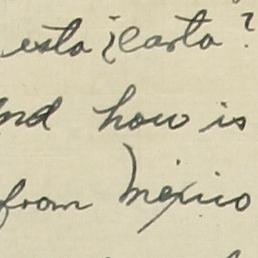 esta ¿carta?
and how is
from Mexico